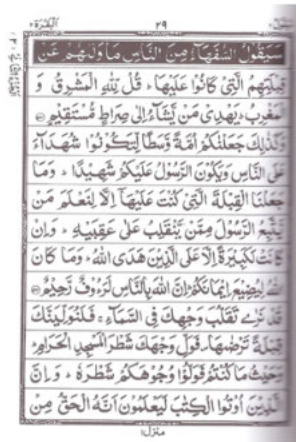 البقرة ٢ ٢٩ سيقول ٢
سَيَقُولُ السُّفَهَاءُ مِنَ النَّاسِ مَا وَلّٰىهُمْ عَنْ
قِبْلَتِهِمُ الَّتِیْ كَانُوْا عَلَیْهَا ؕ قُلْ لِّلّٰهِ الْمَشْرِقُ وَ
الْمَغْرِبُ ؕ یَهْدِیْ مَنْ یَّشَآءُ اِلٰی صِرَاطٍ مُّسْتَقِیْمٍ
وَكَذٰلِكَ جَعَلْنٰكُمْ اُمَّةً وَّسَطًا لِّتَكُوْنُوْا شُهَدَآءَ
عَلَی النَّاسِ وَیَكُوْنَ الرَّسُوْلُ عَلَیْكُمْ شَهِیْدًا ؕ وَمَا
جَعَلْنَا الْقِبْلَةَ الَّتِیْ كُنْتَ عَلَیْهَاۤ اِلَّا لِنَعْلَمَ مَنْ
یَّتَّبِعُ الرَّسُوْلَ مِمَّنْ یَّنْقَلِبُ عَلٰی عَقِبَیْهِ ؕ وَاِنْ
كَانَتْ لَكَبِیْرَةً اِلَّا عَلَی الَّذِیْنَ هَدَی اللّٰهُ ؕ وَمَا كَانَ
اللّٰهُ لِیُضِیْعَ اِیْمَانَكُمْ ؕ اِنَّ اللّٰهَ بِالنَّاسِ لَرَءُوْفٌ رَّحِیْمٌ
قَدْ نَرٰی تَقَلُّبَ وَجْهِكَ فِی السَّمَآءِ ۚ فَلَنُوَلِّیَنَّكَ
قِبْلَةً تَرْضٰىهَا ۪ فَوَلِّ وَجْهَكَ شَطْرَ الْمَسْجِدِ الْحَرَامِ ؕ
وَحَیْثُ مَا كُنْتُمْ فَوَلُّوْا وُجُوْهَكُمْ شَطْرَهٗ ؕ وَاِنَّ
الَّذِیْنَ اُوْتُوا الْكِتٰبَ لَیَعْلَمُوْنَ اَنَّهُ الْحَقُّ مِنْ
منزل ١